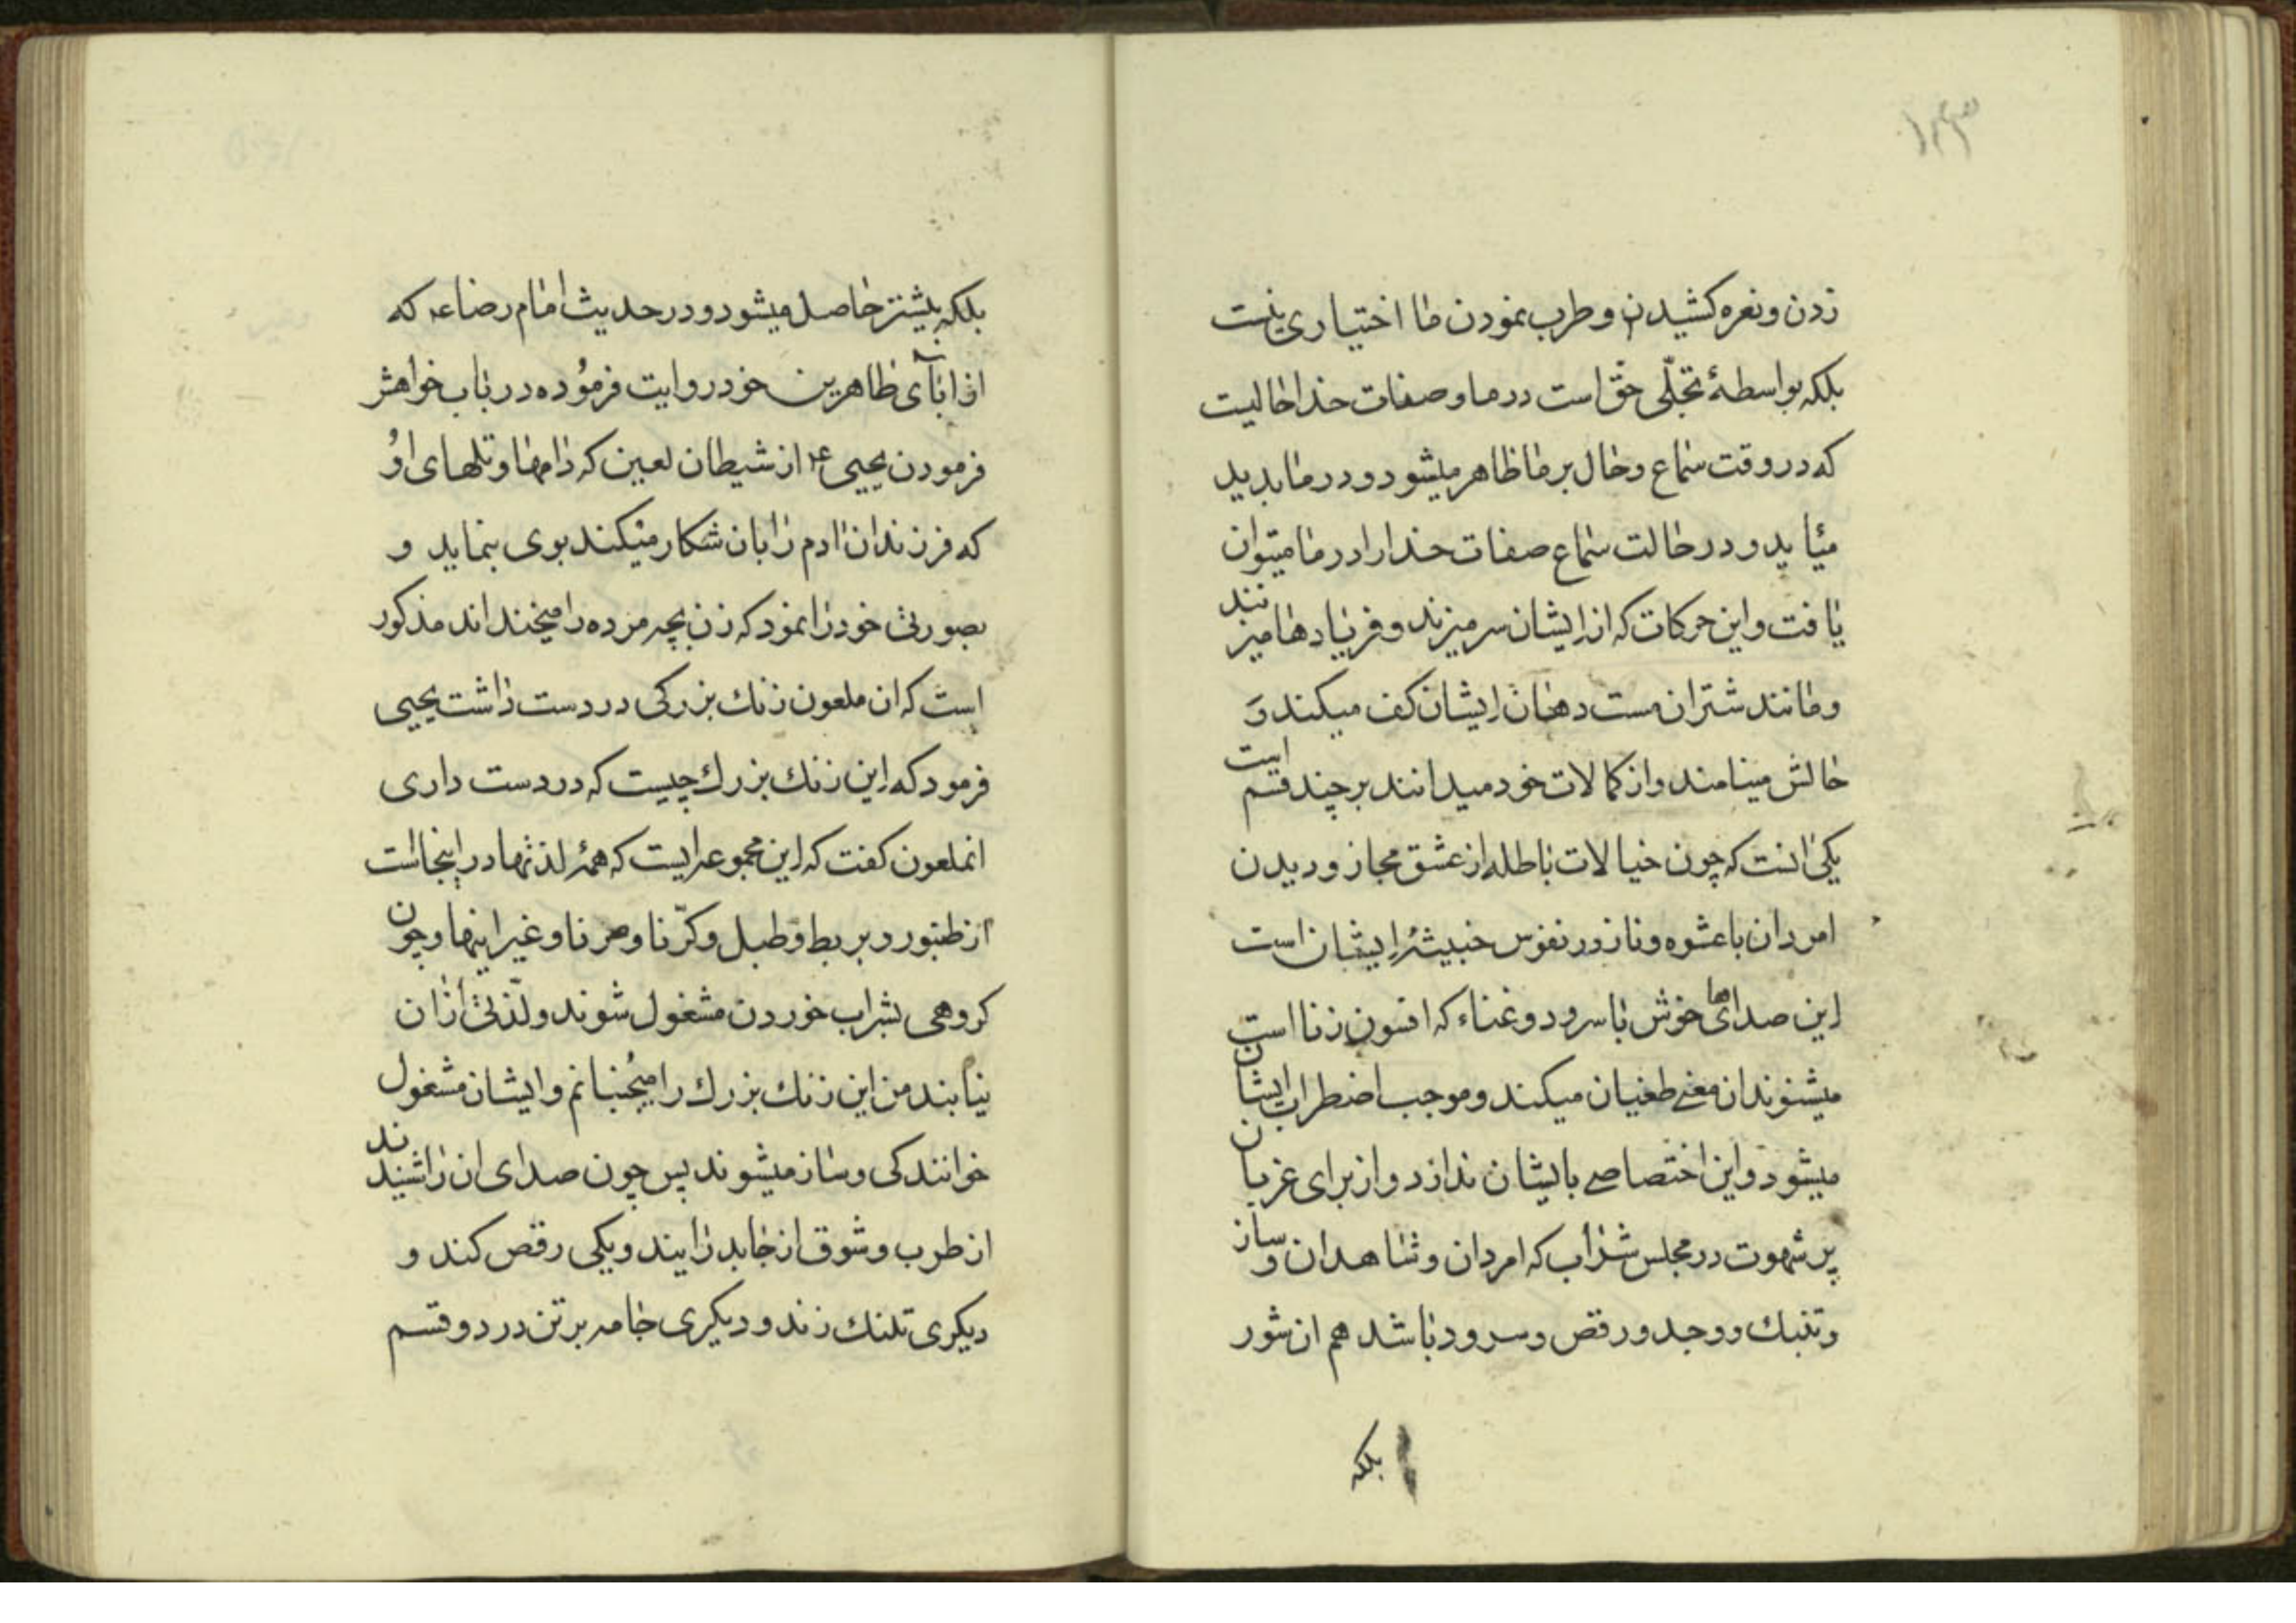 ۱۴۳
زدن و نعره کشیدن و طرب نمودن ما اختیاری نیست
بلکه بواسطهٔ تجلّی حق است در ما و صفات خدا حالیست
که در وقت سماع و حال بر ما ظاهر میشود و در ما پدید
میٔاید و در حالت سماع صفات خدا را در ما میتوان
یافت و این حرکات که از ایشان سر میزند و فریادها میزنند
و مانند شتران مست دهان ایشان کف میکند و
حالش مینامند و از کمالات خود میدانند بر چند قسم است
یکی انست که چون خیالات باطله از عشق مجاز و دیدن
امردان با عشوه و ناز در نفوس خبیثهٔ ایشان است
این صداهای خوش با سرود و غناء که افسون زنا است
میشنوند ان معنی طغیان میکند و موجب اضطراب ایشان
میشود و این اختصاصی بایشان ندارد و از برای عزبان
پر شهوت در مجلس شراب که امردان و شاهدان و ساز
و تنبک و وجد و رقص و سرود باشد هم ان شور
بلکه
بلکه بیشتر حاصل میشود و در حدیث امام رضا ع که
از ابآی طاهرین خود روایت فرموُده در باب خواهش
فرمودن یحیی ع از شیطان لعین که دامها و تلهای اوُ
که فرزندان ادم را بان شکار میکند بوی بنماید و
بصورتی خود را نمود که زن بچه مرده را میخنداند مذکور
است که ان ملعون زنک بزرکی در دست داشت یحیی
فرمود که این زنک بزرک چیست که در دست داری
انملعون کفت که این مجموعه ایست که همهٔ لذتها در اینجاست
از طنبور و بربط و طبل و کرّنا و صرنا و غیر اینها و چون
کروهی بشراب خوردن مشغول شوند و لذّتی از ان
نیابند من این زنک بزرک را میجُنبانم و ایشان مشغول
خوانندکی و ساز میشوند پس چون صدای ان را شنیدند
از طرب و شوق از جا بدر ایند و یکی رقص کند و
دیکری تلنک زند و دیکری جامه بر تن درد و قسم